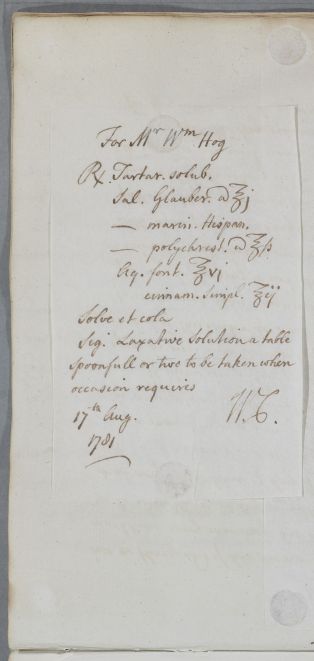 For Mr Wm Hog
℞. Tartar. solub.
Sal. Glauber. a ℥j
— marin. Hispan.
— polychrest. a ℥ß
Aq. font. ℥vj
cinnam. simpl. ℥ij
Solve et cola
Sig. Laxative Solution a table
spoonfull or two to be taken when
occasion requires
17th Aug. W.C.
1781